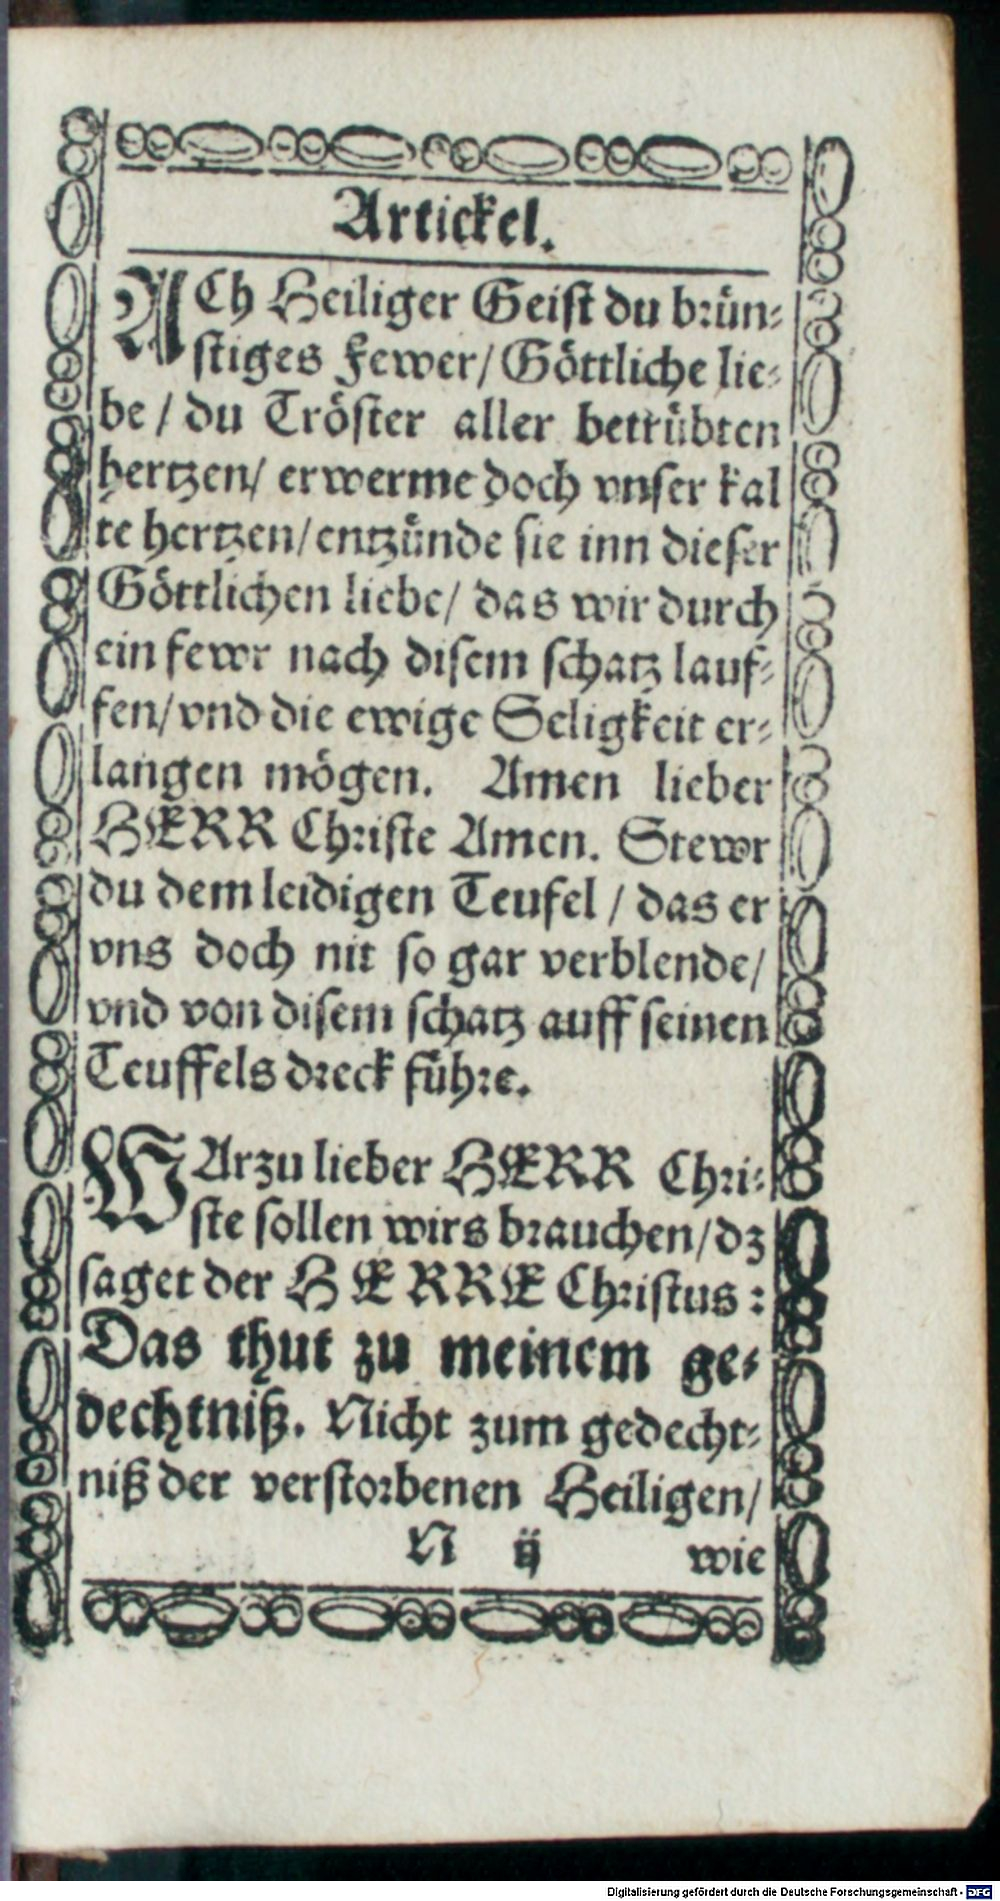 Artickel.
ACh Heiliger Geist du brün-
stiges Fewer/ Göttliche lie-
be / du Tröster aller betrübten
hertzen/ erwerme doch vnser kal
te hertzen/ entzünde sie inn dieser
Göttlichen liebe/ das wir durch
ein fewr nach disem schatz lauf-
fen/ vnd die ewige Seligkeit er-
langen mögen. Amen lieber
HERR Christe Amen. Stewr
du dem leidigen Teufel / das er
vns doch nit so gar verblende/
vnd von disem schatz auff seinen
Teuffels dreck führe.
WArzu lieber HERR Chri-
ste sollen wirs brauchen/ dz
saget der HERRE Christus:
Das thut zu meinem ge-
dechtniß. Nicht zum gedecht-
niß der verstorbenen Heiligen/
N ij wie
Digitalisierung gefördert durch die Deutsche Forschungsgemeinschaft - DFG